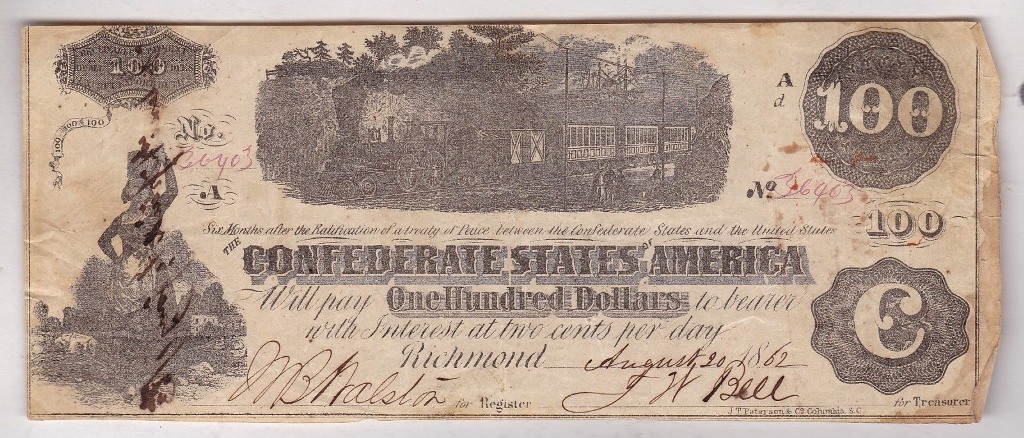 100
100
No.
36903
A
A
d
100
No
36903
100
Six Months after the Ratification of a treaty of Peace between the Confederate States and the United States
THE CONFEDERATE STATES OF AMERICA
Will pay One Hundred Dollars to bearer
with Interest at two cents per day
Richmond August 20 1862
for Register
J W Bell
for Treasurer
C
J.T. Paterson & Co Columbia, S.C.